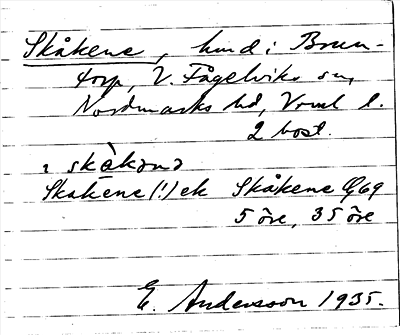 Skåkene, hmd i Brun-
torp, V. Fågelviks sn,
Nordmarks hd, Vrml l.
2 bost.
ı skå̀kənə
Skakene (!) ek Skåkene Q69
5 öre, 35 öre
E. Andersson 1935.